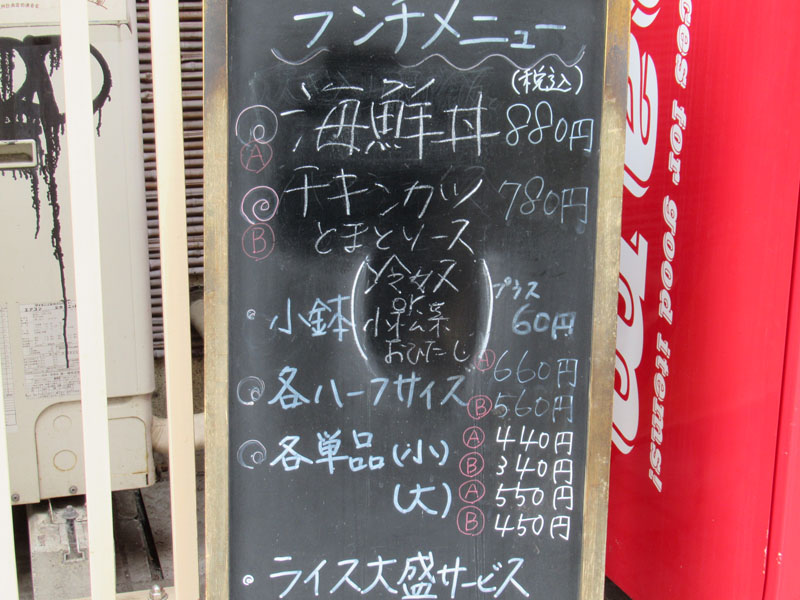 ランチメニュー
(税込)
海鮮丼 880円
Ⓐ
チキンカツ 780円
Ⓑ とまとソース
・小鉢 (冷奴 プラス 60円
おひたし)
各ハーフサイズ Ⓐ 660円
Ⓑ 560円
各単品(小) Ⓐ 440円
Ⓑ 340円
(大) Ⓐ 550円
Ⓑ 450円
・ライス大盛サービス
ces for good items!